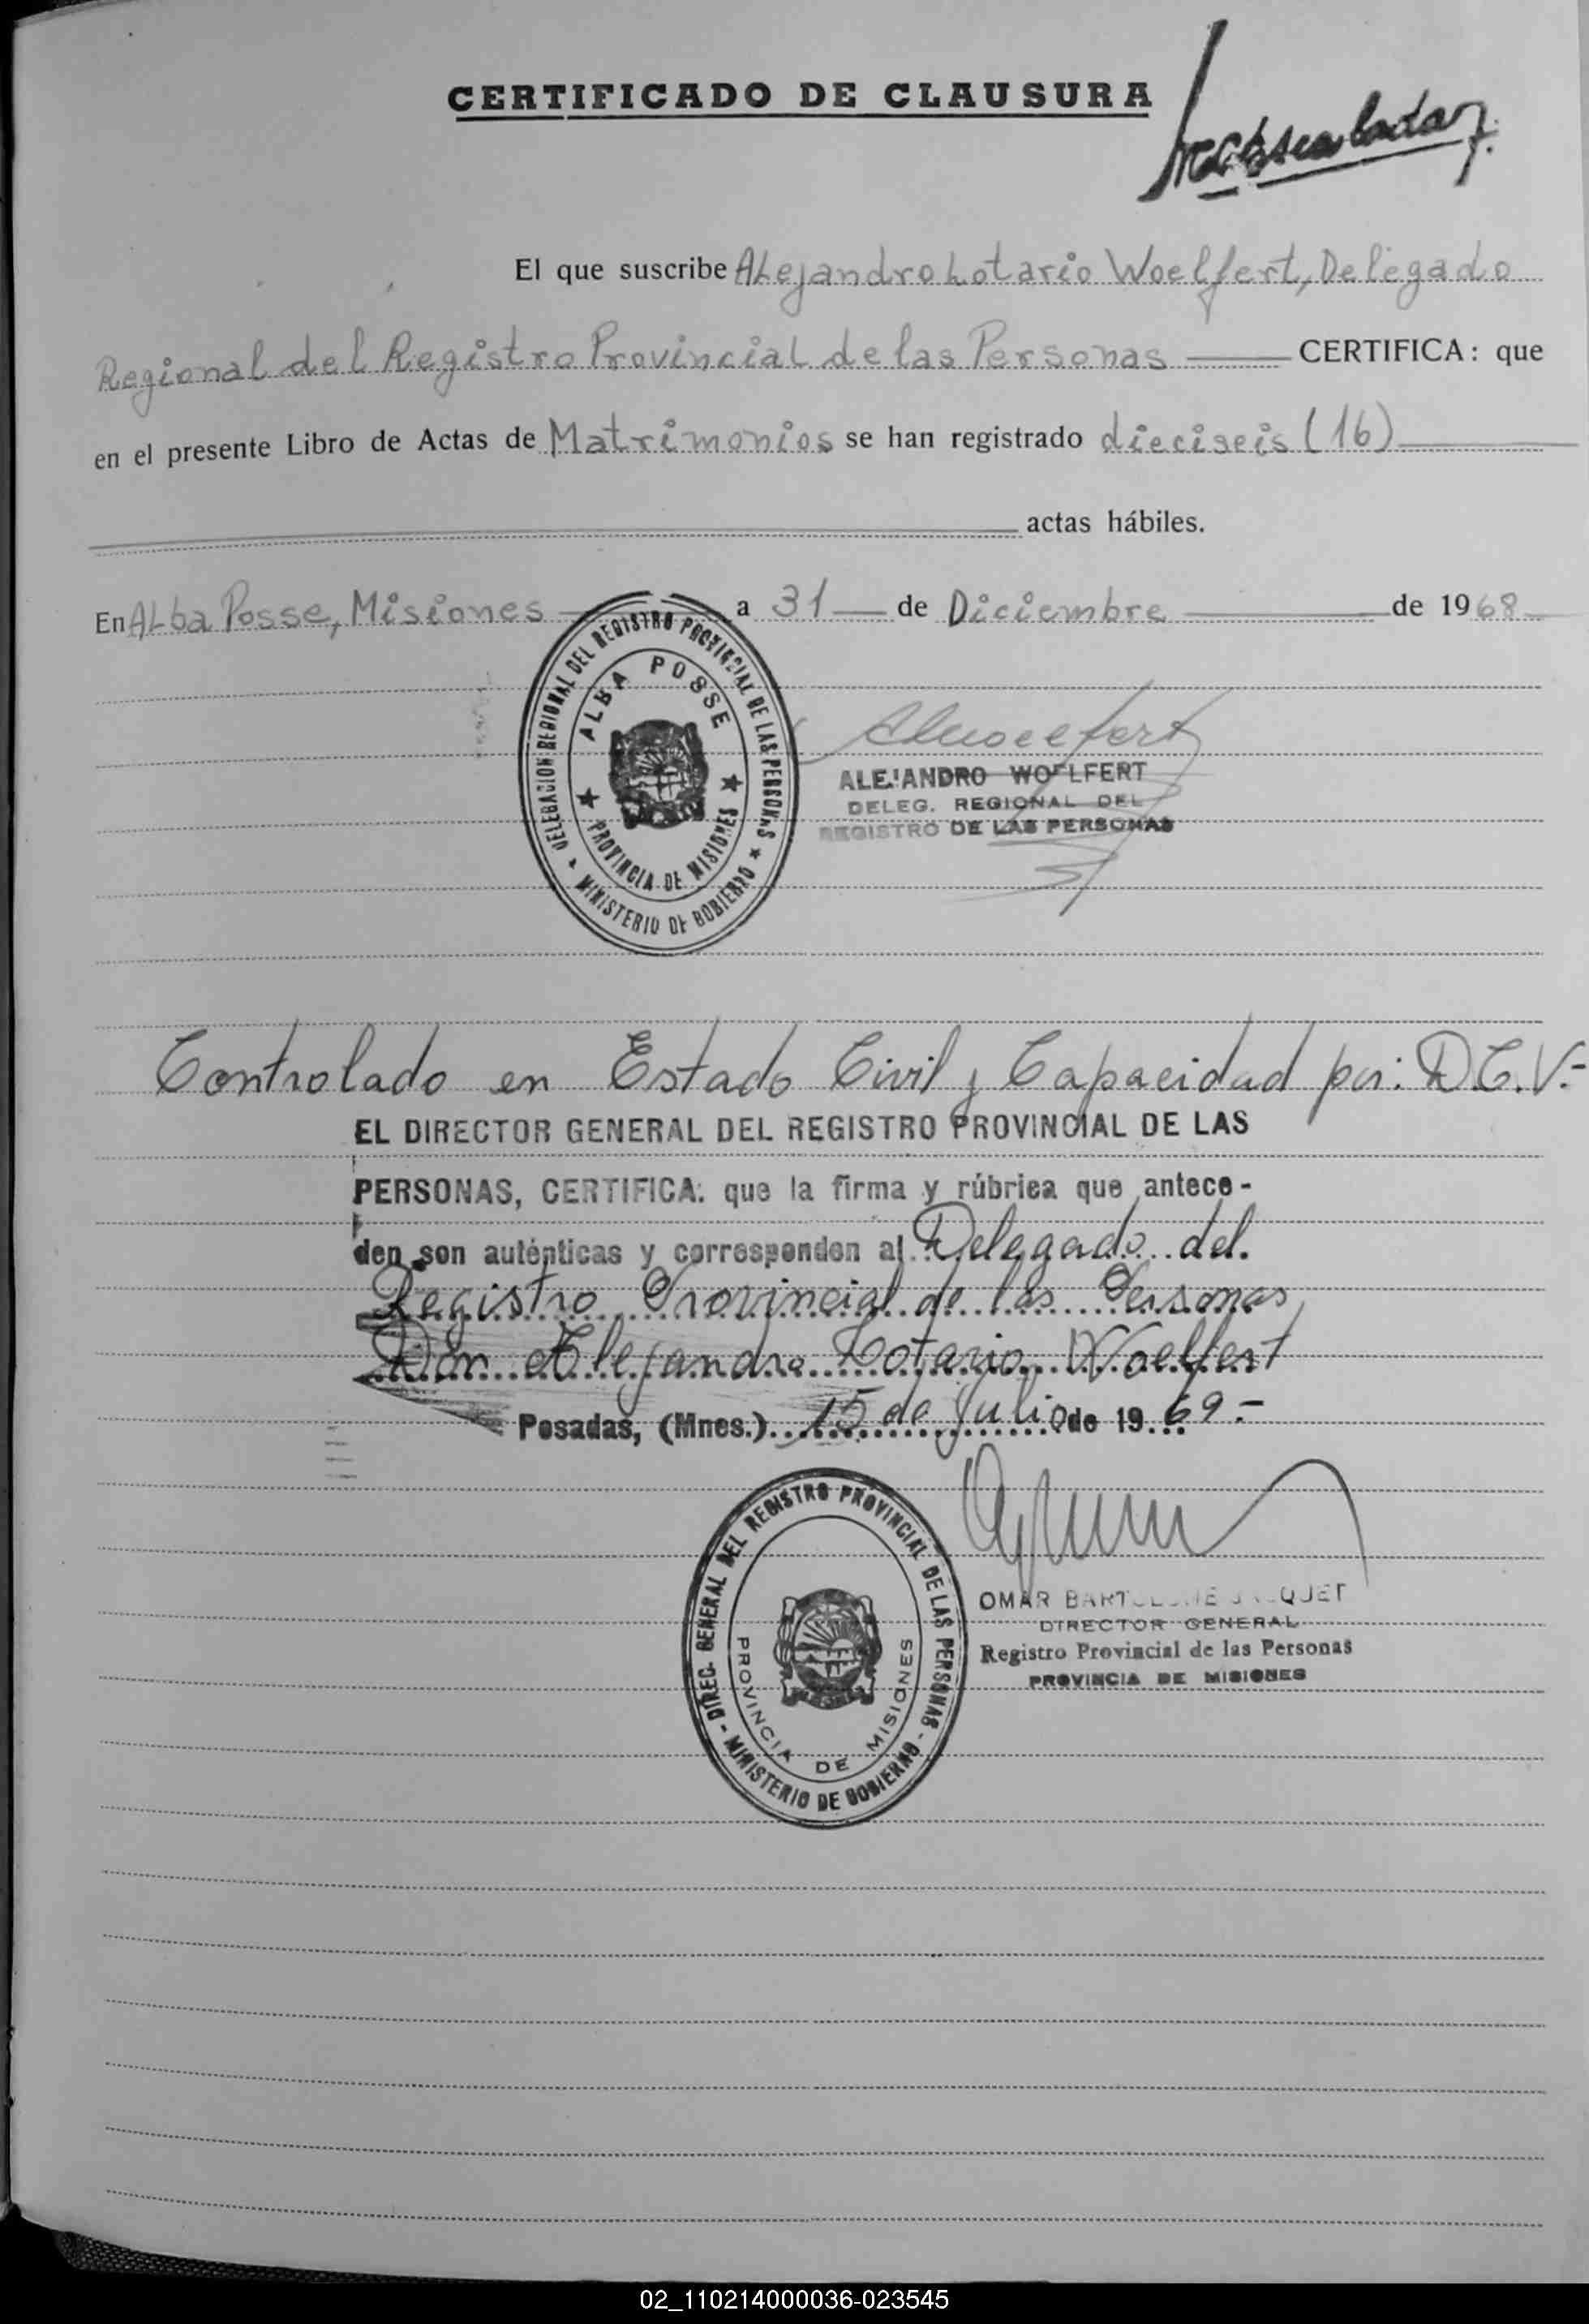 CERTIFICADO DE CLAUSURA
El que suscribe Alejandro Lotario Woelfert, Delegado
Regional del Registro Provincial de las Personas CERTIFICA: que
en el presente Libro de Actas de Matrimonios se han registrado dieciseis (16)
actas hábiles.
En Alba Posse, Misiones a 31 de Diciembre de 1968
DELEGACION REGIONAL DEL REGISTRO PROVINCIAL DE LAS PERSONAS
MINISTERIO DE GOBIERNO
ALBA POSSE
PROVINCIA DE MISIONES
ALEJANDRO WOELFERT
DELEG. REGIONAL DEL
REGISTRO DE LAS PERSONAS
Controlado en Estado Civil y Capacidad por: D.C.V.-
EL DIRECTOR GENERAL DEL REGISTRO PROVINCIAL DE LAS
PERSONAS, CERTIFICA: que la firma y rúbrica que antece-
den son auténticas y corresponden al Delegado del
Registro Provincial de las Personas,
Don Alejandro Lotario Woelfert
Posadas, (Mnes.) 15 de Julio de 1969.-
DIREC. GENERAL DEL REGISTRO PROVINCIAL DE LAS PERSONAS - MINISTERIO DE GOBIERNO -
PROVINCIA DE MISIONES
OMAR
DIRECTOR GENERAL
Registro Provincial de las Personas
PROVINCIA DE MISIONES
02_110214000036-023545